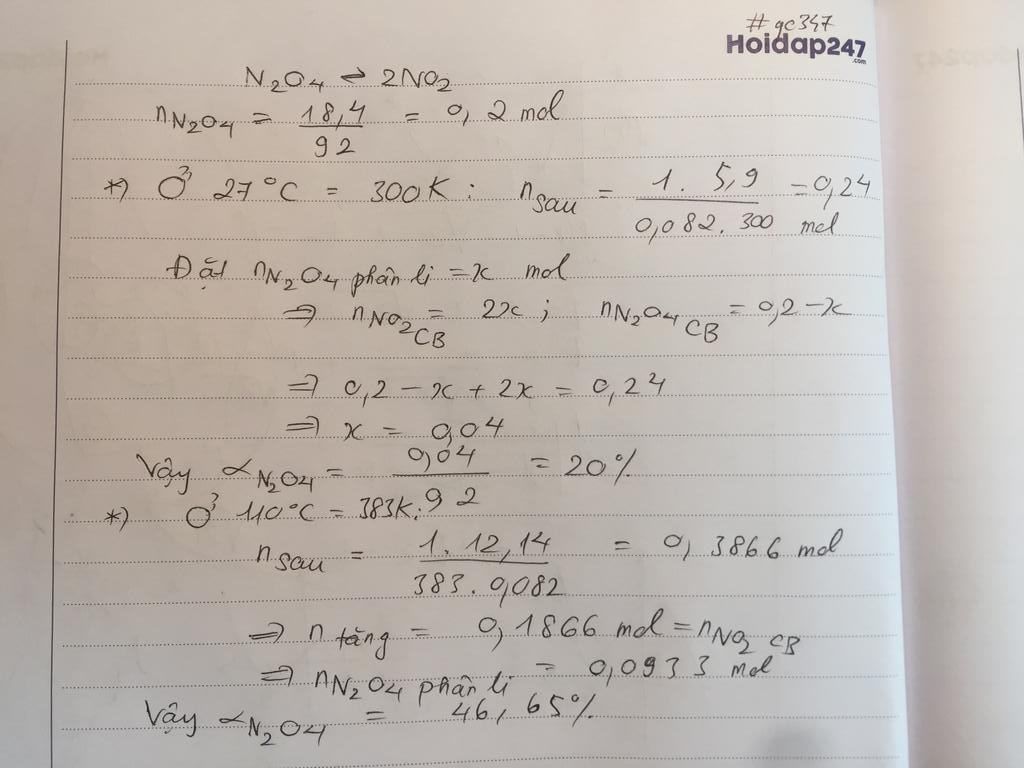 #gc347
Hoidap247
.com
N₂O₄ ⇌ 2NO₂
nN₂O₄ = 18,4 / 92 = 0,2 mol
*) Ở 27°C = 300K: nsau = 1. 5,9 / 0,082. 300 = 0,24 mol
Đặt nN₂O₄ phân li = x mol
⇒ nNO₂ CB = 2x; nN₂O₄ CB = 0,2 - x
⇒ 0,2 - x + 2x = 0,24
⇒ x = 0,04
Vậy αN₂O₄ = 0,04 / 92 = 20%
*) Ở 110°C = 383K:
nsau = 1. 12,14 / 383. 0,082 = 0,3866 mol
⇒ n tăng = 0,1866 mol = nNO₂ CB
⇒ nN₂O₄ phân li = 0,0933 mol
Vậy αN₂O₄ = 46,65%